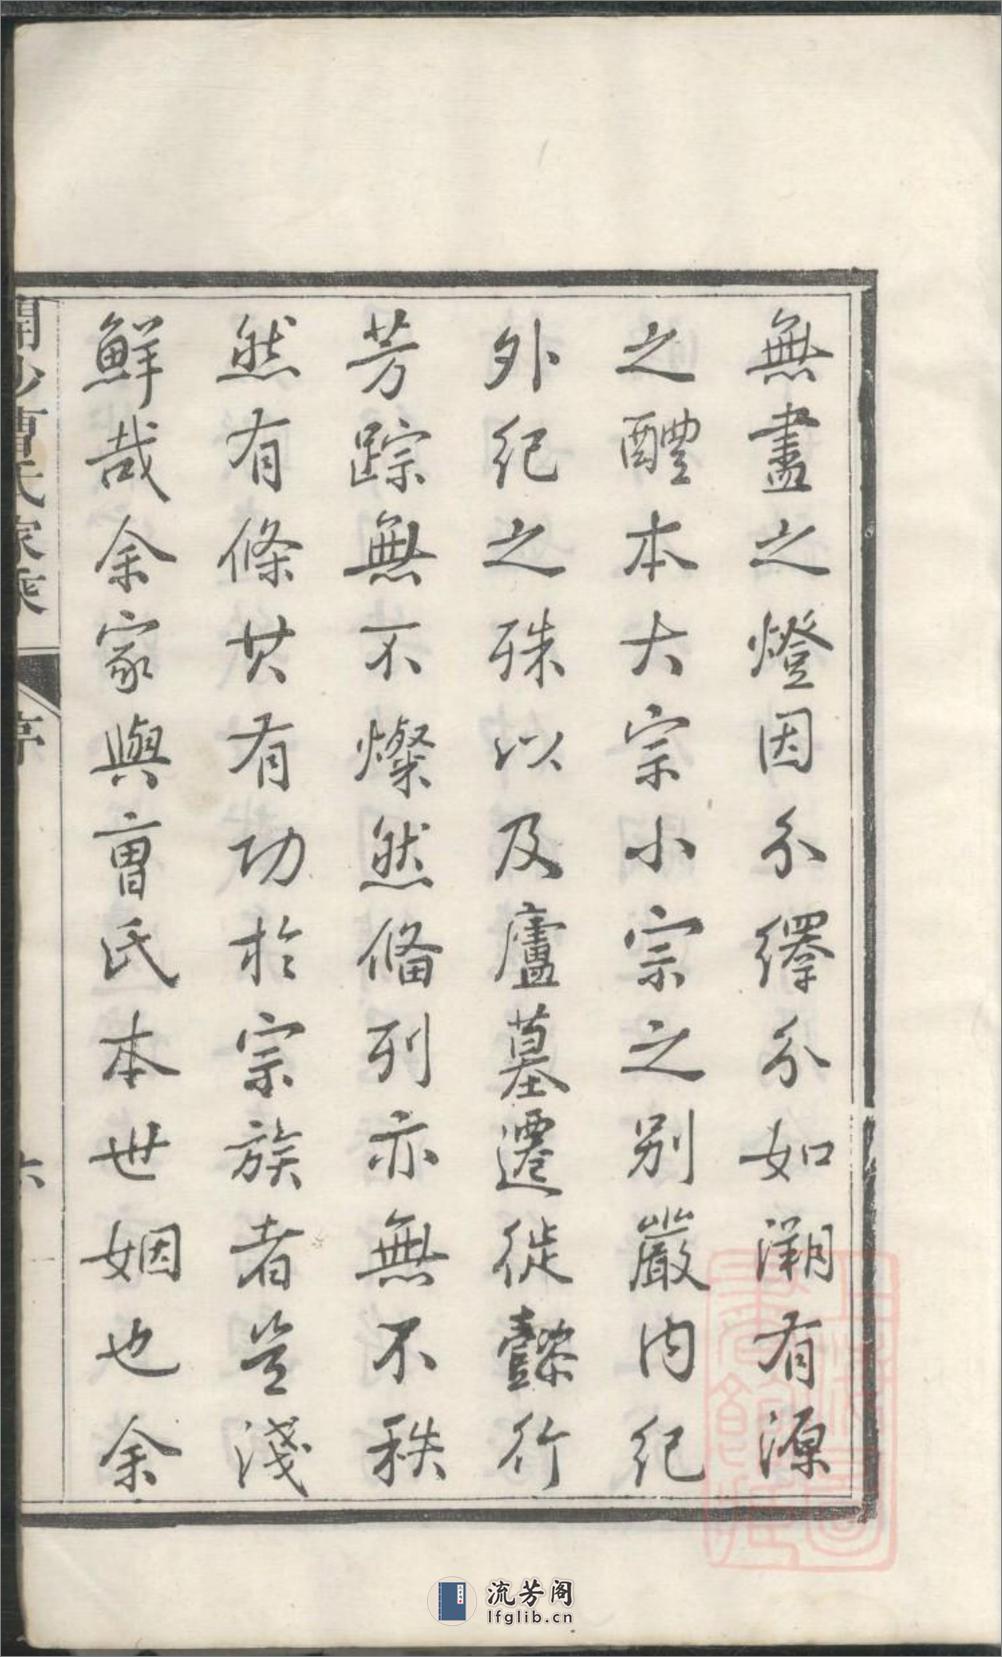 無盡之燈因分繹分如溯有源
之醴本大宗小宗之别嚴内紀
外紀之殊以及廬墓遷徙懿行
芳踪無不燦然俻列亦無不秩
然有條其有功於宗族者豈淺
鮮哉余家與曺氏本世姻也余
開沙曹氏家乘
序
六
上海圖書館藏
流芳阁
lfglib.cn